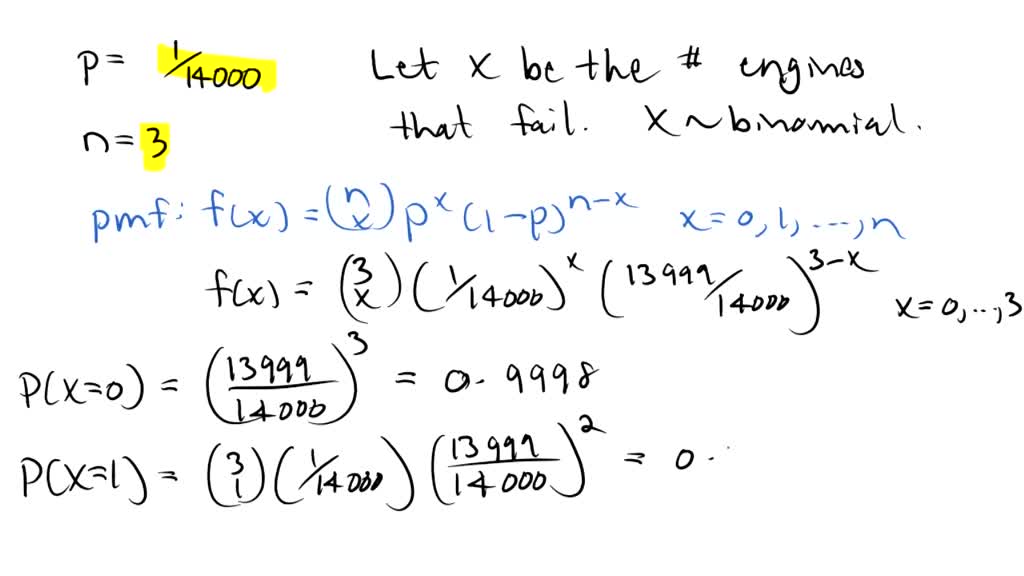 p = 1/14000 Let X be the # engines
n = 3 that fail. X ~ binomial.
pmf: f(x) = (n x) p^x (1-p)^{n-x} x = 0, 1, ..., n
f(x) = (3 x) (1/14000)^x (13999/14000)^{3-x} x = 0, ..., 3
P(X=0) = (13999/14000)^3 = 0.9998
P(X=1) = (3 1) (1/14000) (13999/14000)^2 = 0.